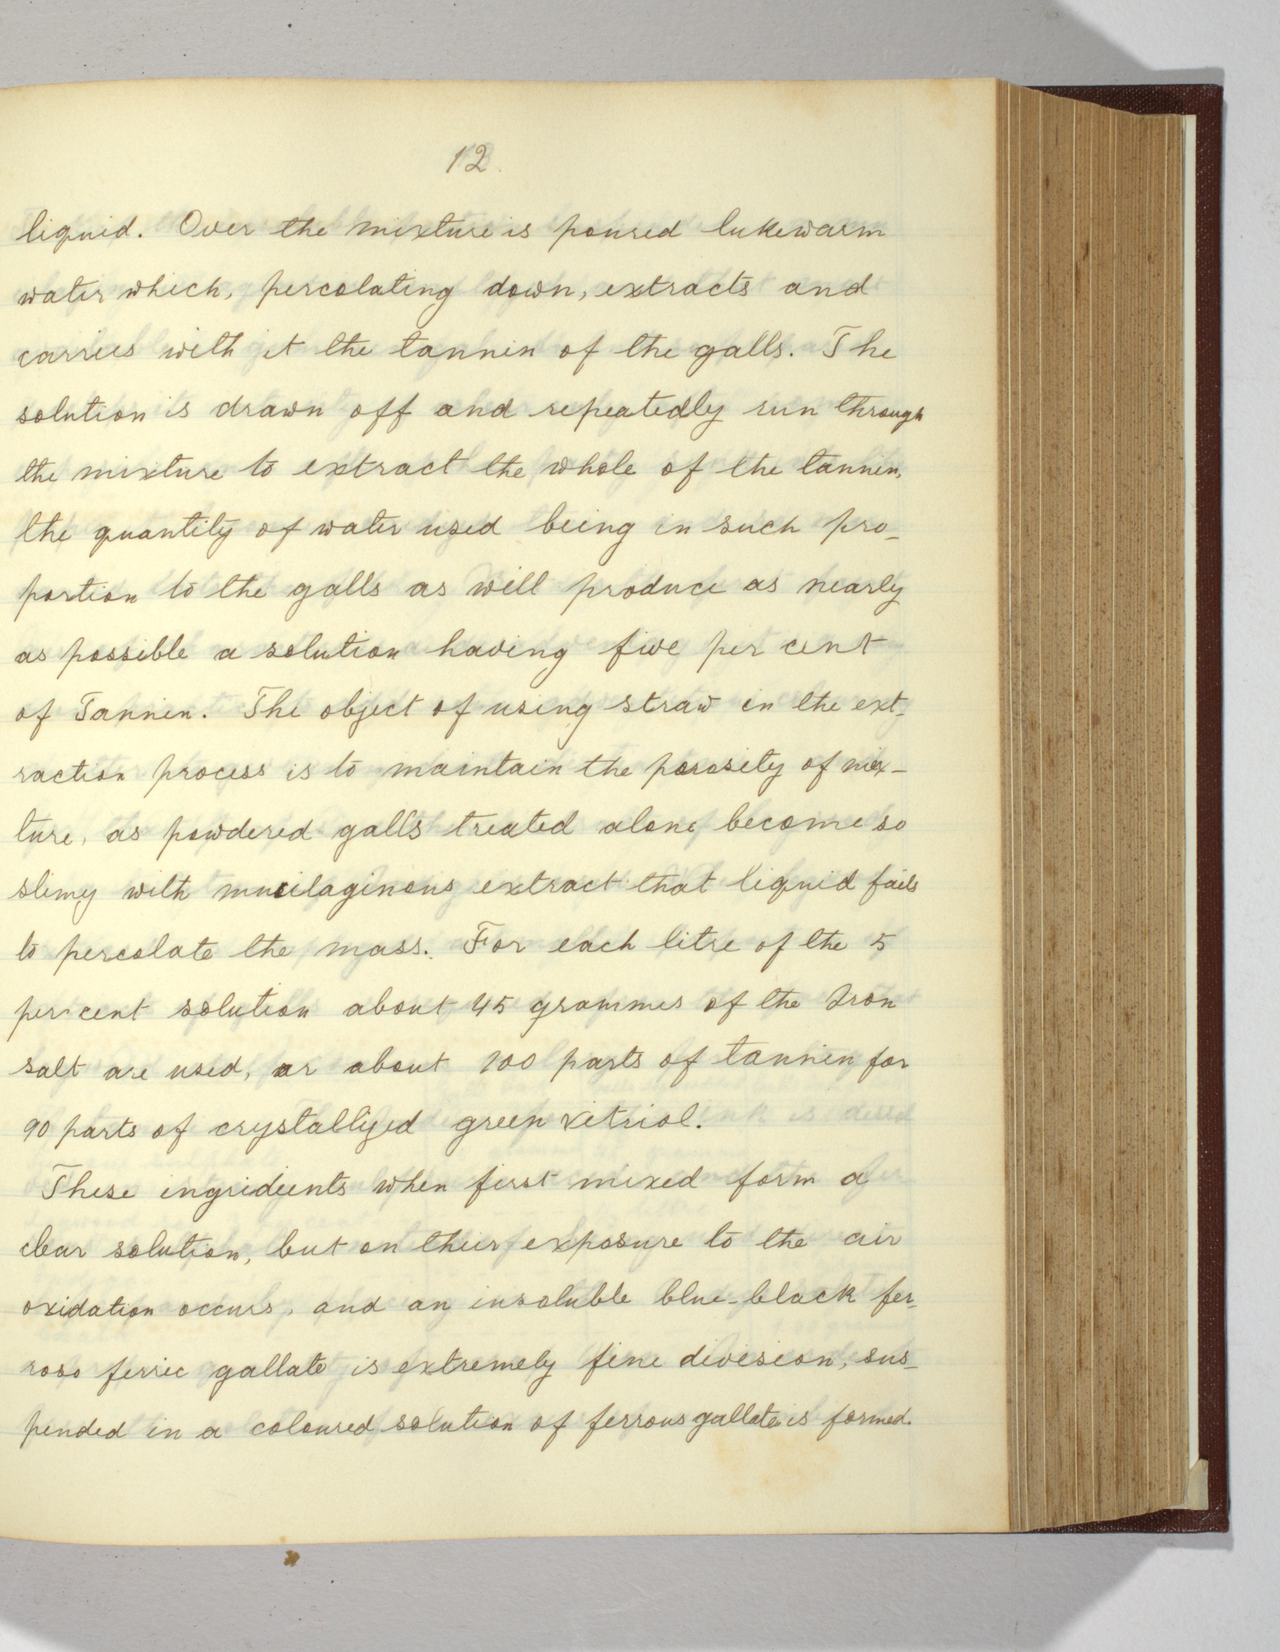 12.
liquid. Over the mixture is poured lukewarm
water which, percolating down, extracts and
carries with it the tannin of the galls. The
solution is drawn off and repeatedly run through
the mixture to extract the whole of the tannin,
the quantity of water used being in such pro-
portion to the galls as will produce as nearly
as possible a solution having five per cent
of Tannin. The object of using straw in the ext-
raction process is to maintain the porosity of mix-
ture, as powdered galls treated alone become so
slimy with mucilaginous extract that liquid fails
to percolate the mass. For each litre of the 5
per cent solution about 45 grammes of the Iron
salt are used, or about 100 parts of tannin for
90 parts of crystallized green vitriol.
These ingridients when first mixed form a
clear solution, but on their exposure to the air
oxidation occurs, and an insoluble blue-black fer-
roso ferric gallate is extremely fine division, sus-
pended in a coloured solution of ferrous gallate is formed.